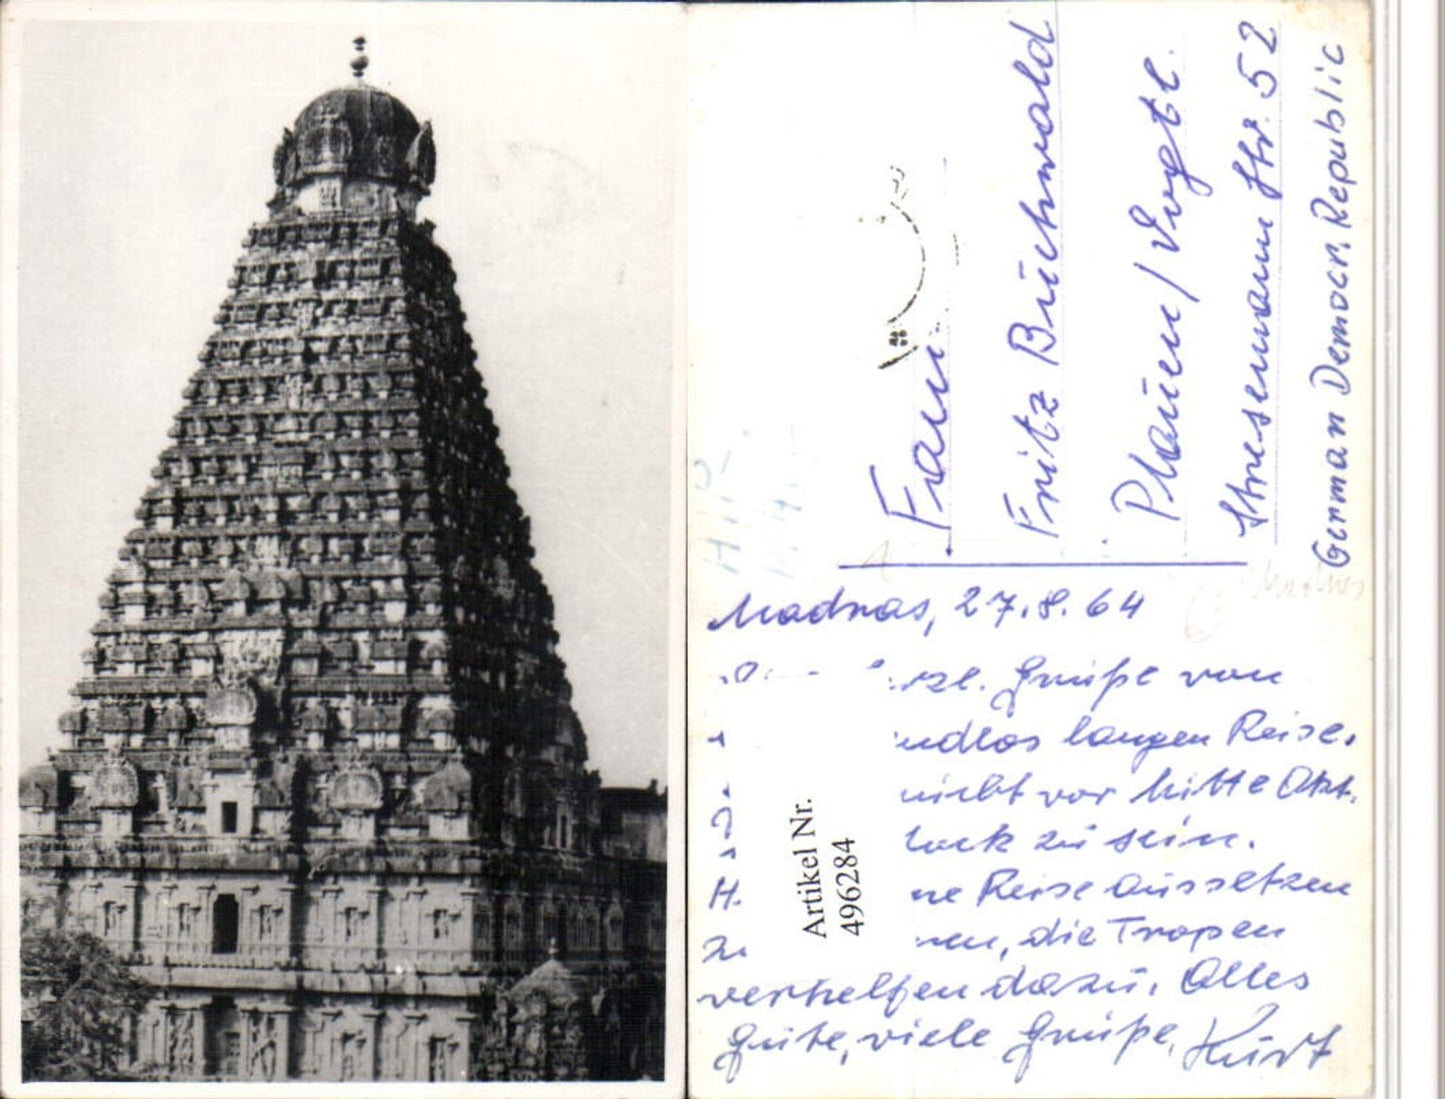 Frau
Fritz Buchwald
Plauen / Vogtl.
Stresemann Str. 52
German Democr. Republic
Madras, 27.8.64
Grüße von
langen Reise.
nicht vor Mitte Okt.
zu sein.
H. Reise aussetzen
die Tropen
verhelfen dazu. Alles
Gute, viele Grüße, Kurt
Artikel Nr.
496284